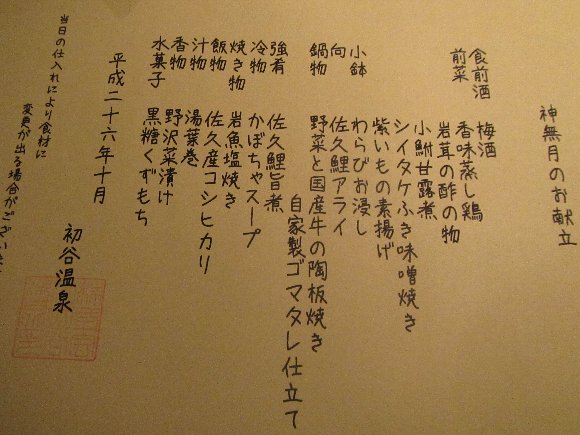 神無月のお献立
食前酒 梅酒
前菜 香味蒸し鶏
岩茸の酢の物
小鮒甘露煮
シイタケふき味噌焼き
紫いもの素揚げ
小鉢 わらびお浸し
向 佐久鯉アライ
鍋物 野菜と国産牛の陶板焼き
自家製ゴマタレ仕立て
強肴 佐久鯉旨煮
冷物 かぼちゃスープ
焼き物 岩魚塩焼き
飯物 佐久産コシヒカリ
汁物 湯葉巻
香物 野沢菜漬け
水菓子 黒糖くずもち
平成二十六年十月
初谷温泉
当日の仕入れにより食材に
変更が出る場合がございま